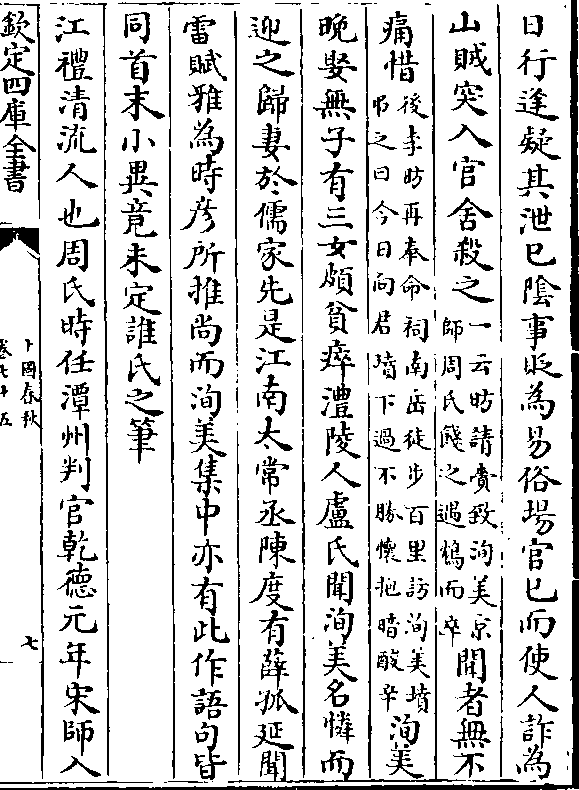 日行逢疑其泄已陰事貶為易俗場官已而使人詐為
山賊突入官舍殺之一云昉請賫致洵美京師周氏餞之遇鴆而卒聞者無不
痛惜後李昉再奉命祠南岳徒步百里訪洵美墳吊之曰今日向君墳下過不勝懷抱暗酸辛洵美
晚娶無子有三女頗貧瘁澧陵人盧氏聞洵美名憐而
迎之歸妻於儒家先是江南太常丞陳度有薛孤延聞
雷賦雅為時彦所推尚而洵美集中亦有此作語句皆
同首末小異竟未定誰氏之筆
江禮清流人也周氏時任潭州判官乾德元年宋師入
欽定四庫全書
十國春秋
卷七十五
七